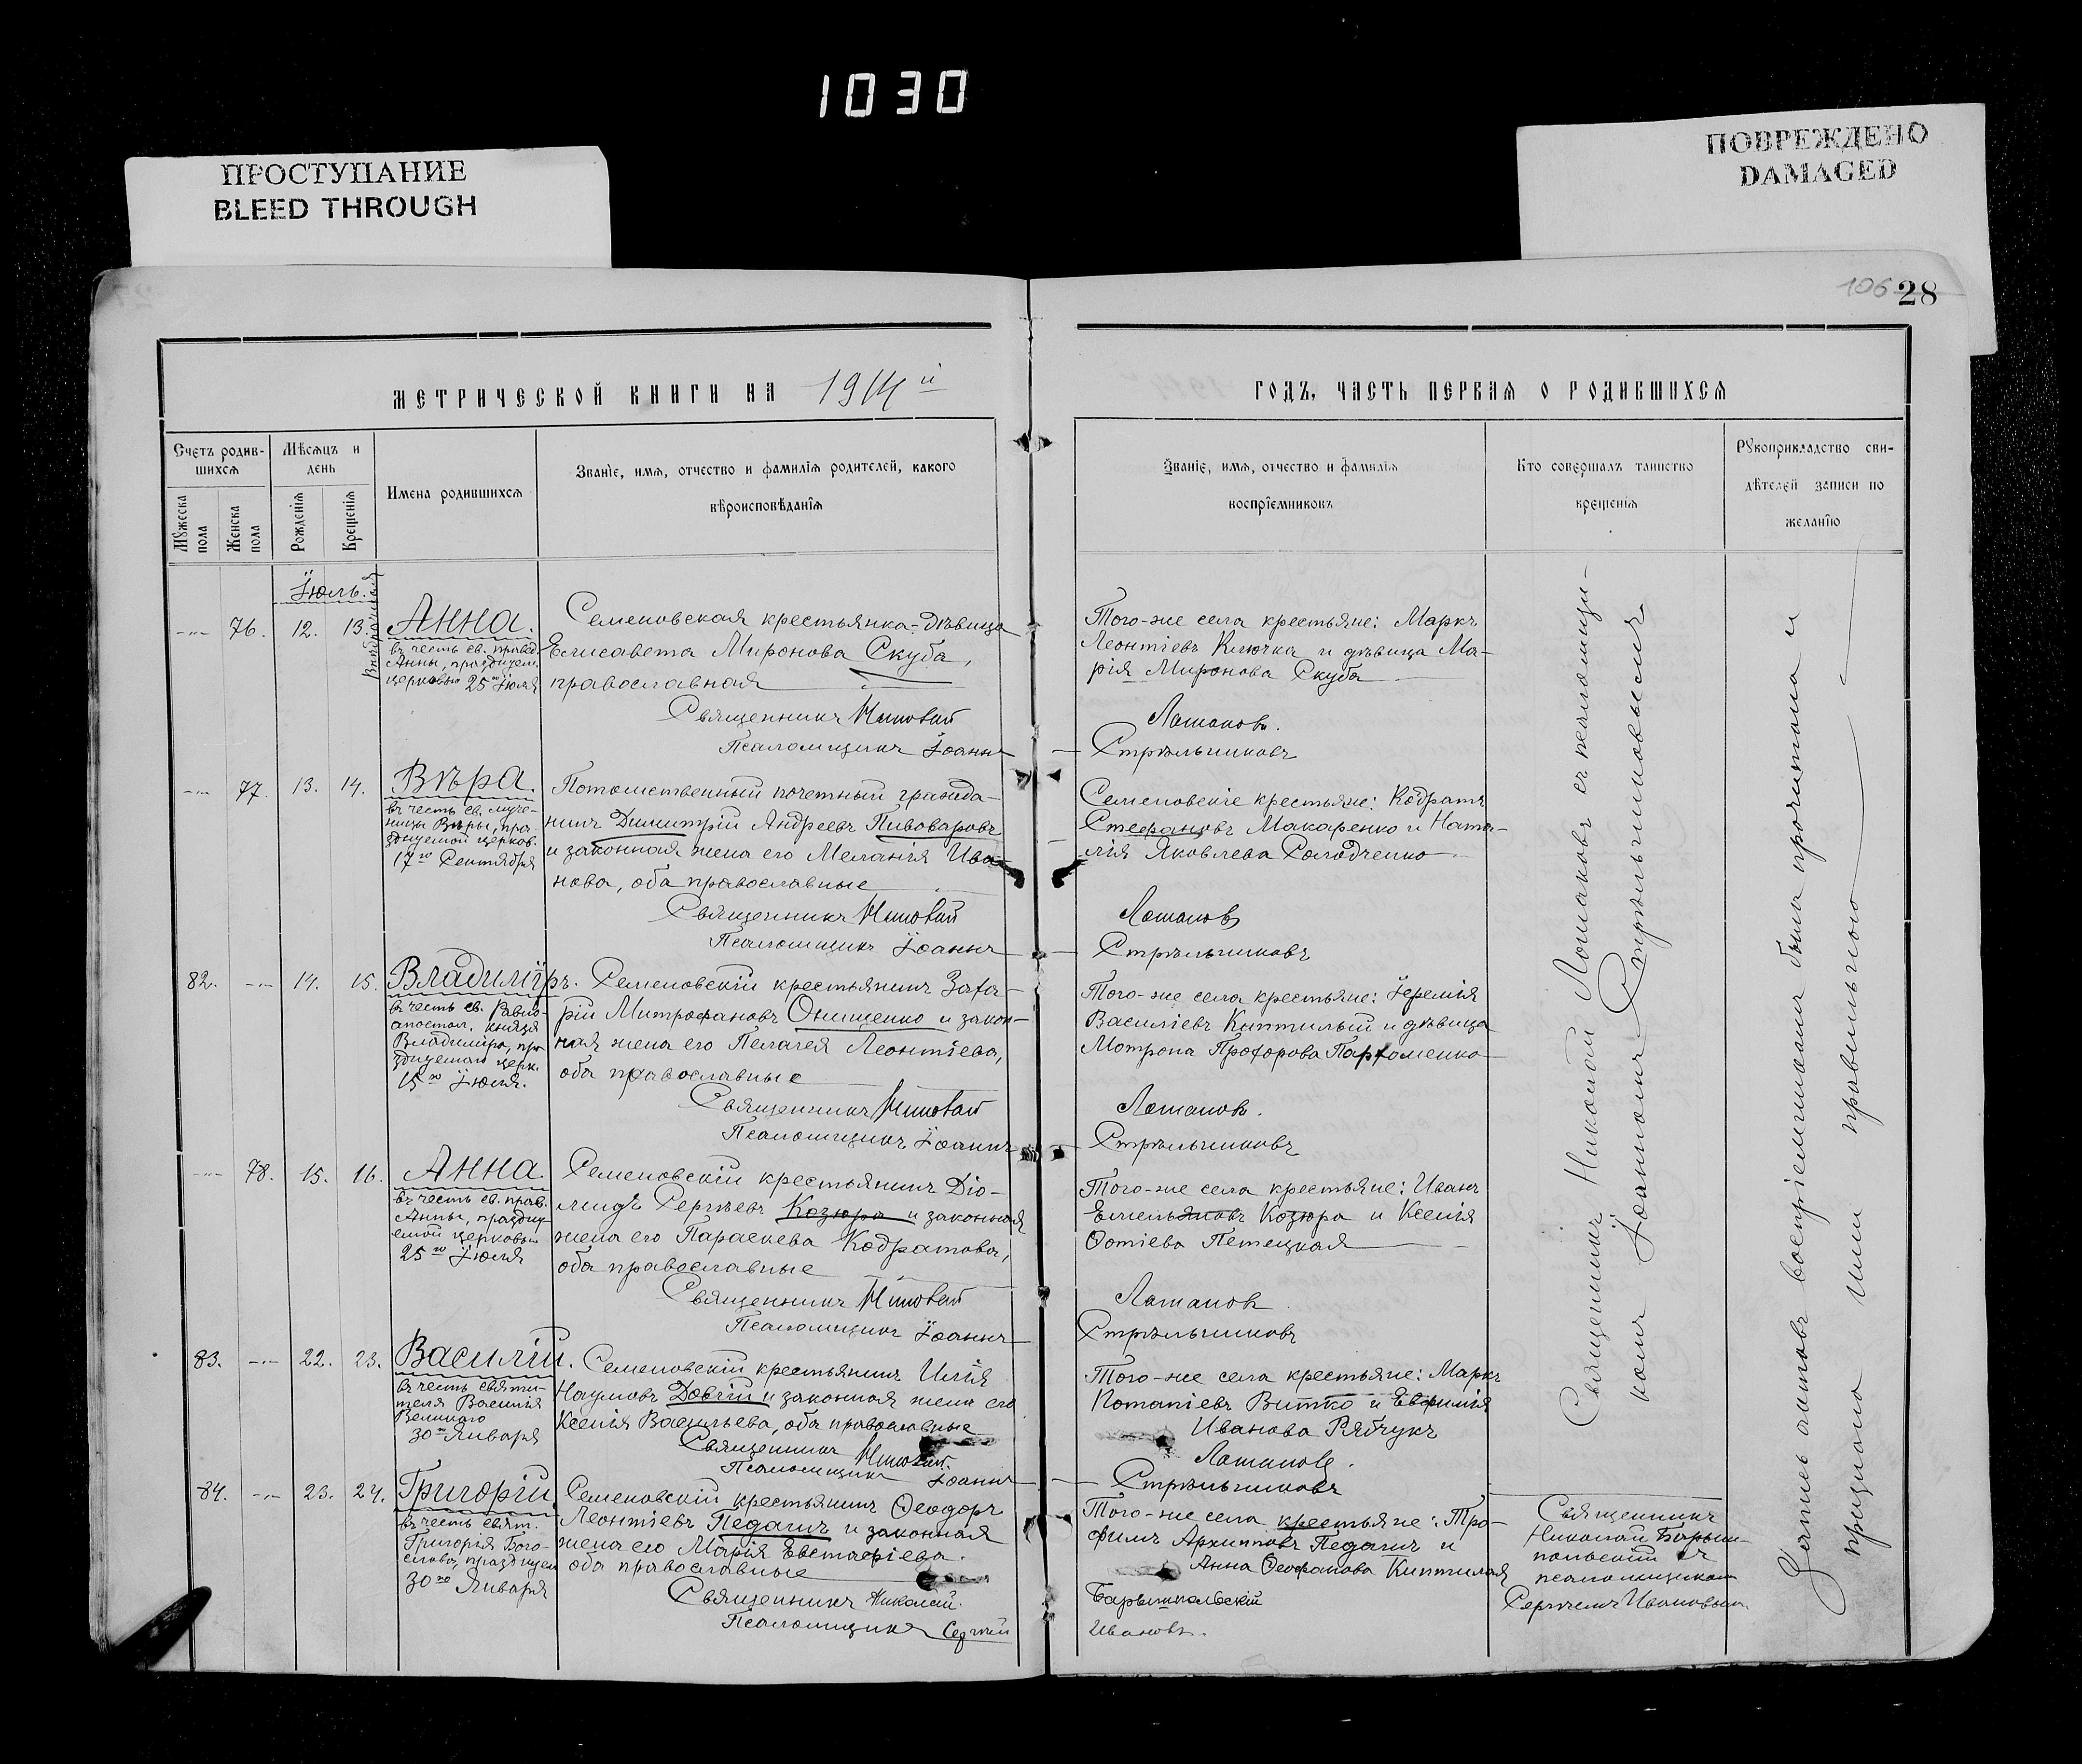 1030
ПРОСТУПАНИЕ
BLEED THROUGH
ПОВРЕЖДЕНО
DAMAGED
106 28
МЕТРИЧЕСКОЙ КНИГИ НА 1914й
ГОДЪ, ЧАСТЬ ПЕРВАЯ О РОДИВШИХСЯ
Счетъ родив-
шихся
Мужеска пола
Женска пола
Мѣсяцъ и
день
Рожденія
Крещенія
Имена родившихся
Званіе, имя, отчество и фамилія родителей, какого
вѣроисповѣданія
Званіе, имя, отчество и фамилія
воспріемниковъ
Кто совершалъ таинство
крещенія
Рукоприкладство сви-
дѣтелей записи по
желанію
Іюль.
76. 12. 13. Анна.
въ честь св. правед.
Анны, празднуем.
церковью 25го Іюля
Семеновская крестьянка-дѣвица
Елисавета Миронова Скуба,
православная
Священникъ Николай
Псаломщикъ Іоаннъ
Того-же села крестьяне: Маркъ
Леонтіевъ Клочка и дѣвица Ма-
рія Миронова Скуба
Лошаковъ.
Стрѣльниковъ
77. 13. 14. Вѣра.
въ честь св. муче-
ницы Вѣры, пра-
зднуемой церков.
17го Сентября
Потомственный почетный гражда-
нинъ Димитрій Андреевъ Пивоваровъ
и законная жена его Меланія Ива-
нова, оба православные
Священникъ Николай
Псаломщикъ Іоаннъ
Семеновскіе крестьяне: Кодратъ
Стефановъ Макаренко и Ната-
лія Яковлева Солодченко
Лошаковъ
Стрѣльниковъ
82. 14. 15. Владиміръ.
въ честь св. Равно-
апостол. князя
Владиміра, пра-
зднуемаго церк.
15го Іюля.
Семеновскій крестьянинъ Заха-
рій Митрофановъ Онищенко и закон-
ная жена его Пелагея Леонтіева,
оба православные
Священникъ Николай
Псаломщикъ Іоаннъ
Того-же села крестьяне: Іеремія
Василіевъ Киптилый и дѣвица
Мотрона Прохорова Пархоменко
Лошаковъ.
Стрѣльниковъ
78. 15. 16. Анна.
въ честь св. прав.
Анны, праздну-
емой церковью
25го Іюля
Семеновскій крестьянинъ Діо-
мидъ Сергѣевъ Козюра и законная
жена его Параскева Кодратова,
оба православные
Священникъ Николай
Псаломщикъ Іоаннъ
Того-же села крестьяне: Иванъ
Емельяновъ Козюра и Ксенія
Фотіева Петецкая
Лошаковъ
Стрѣльниковъ
83. 22. 23. Василій.
въ честь святи-
теля Василія
Великаго
30го Января
Семеновскій крестьянинъ Илія
Наумовъ Довгій и законная жена его
Ксенія Васильева, оба православные
Священникъ Николай.
Псаломщикъ Іоаннъ
Того-же села крестьяне: Маркъ
Потапіевъ Витко и Евфимія
Иванова Рябчукъ
Лошаковъ.
Стрѣльниковъ
84. 23. 24. Григорій
въ честь свят.
Григорія Бого-
слова, празднуем
30го Января
Семеновскій крестьянинъ Ѳеодоръ
Леонтіевъ Педаичъ и законная
жена его Марія Евстафіева.
оба православные
Священникъ Николай.
Псаломщикъ Сергѣй
Того-же села крестьяне: Тро-
фимъ Архиповъ Педаичъ и
Анна Ѳеофанова Киптилая
Барышпольскій
Ивановъ.
Священникъ Николай Лошаковъ съ псаломщи-
комъ Іоанномъ Стрѣльниковымъ
Священникъ
Николай Барыш-
польскій съ
псаломщикомъ
Сергѣемъ Ивановымъ
Запись актовъ воспріемниками была прочитана и
признана ими правильною